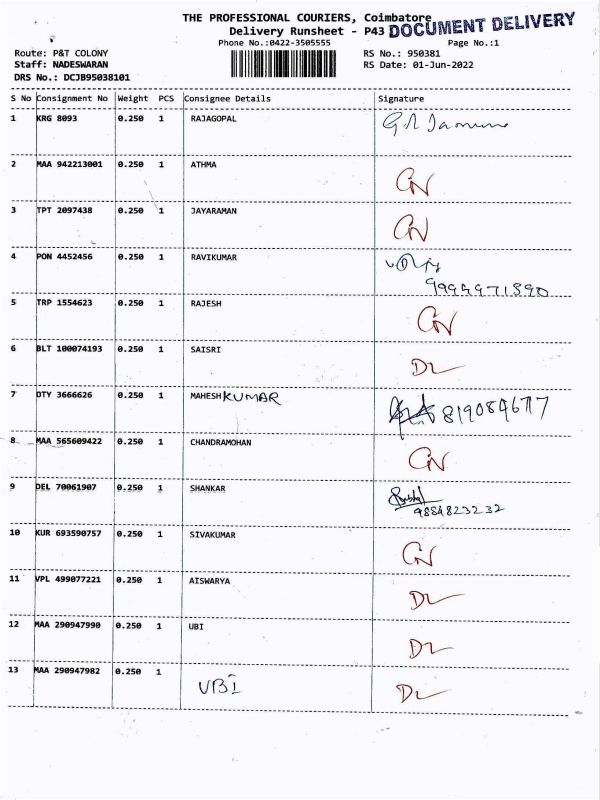 THE PROFESSIONAL COURIERS, Coimbatore
DOCUMENT DELIVERY
Delivery Runsheet - P43
Phone No.:0422-3505555 Page No.:1
Route: P&T COLONY RS No.: 950381
Staff: NADESWARAN RS Date: 01-Jun-2022
DRS No.: DCJB95038101
S No Consignment No Weight PCS Consignee Details Signature
1 KRG 8093 0.250 1 RAJAGOPAL
2 MAA 942213001 0.250 1 ATHMA CN
3 TPT 2097438 0.250 1 JAYARAMAN CN
4 PON 4452456 0.250 1 RAVIKUMAR
5 TRP 1554623 0.250 1 RAJESH CN
6 BLT 100074193 0.250 1 SAISRI DL
7 OTY 3666626 0.250 1 MAHESH KUMAR
8 MAA 565609422 0.250 1 CHANDRAMOHAN CN
9 DEL 70061907 0.250 1 SHANKAR
9884823232
10 KUR 693590757 0.250 1 SIVAKUMAR CN
11 VPL 499077221 0.250 1 AISWARYA DL
12 MAA 290947990 0.250 1 UBI DL
13 MAA 290947982 0.250 1 UBI DL